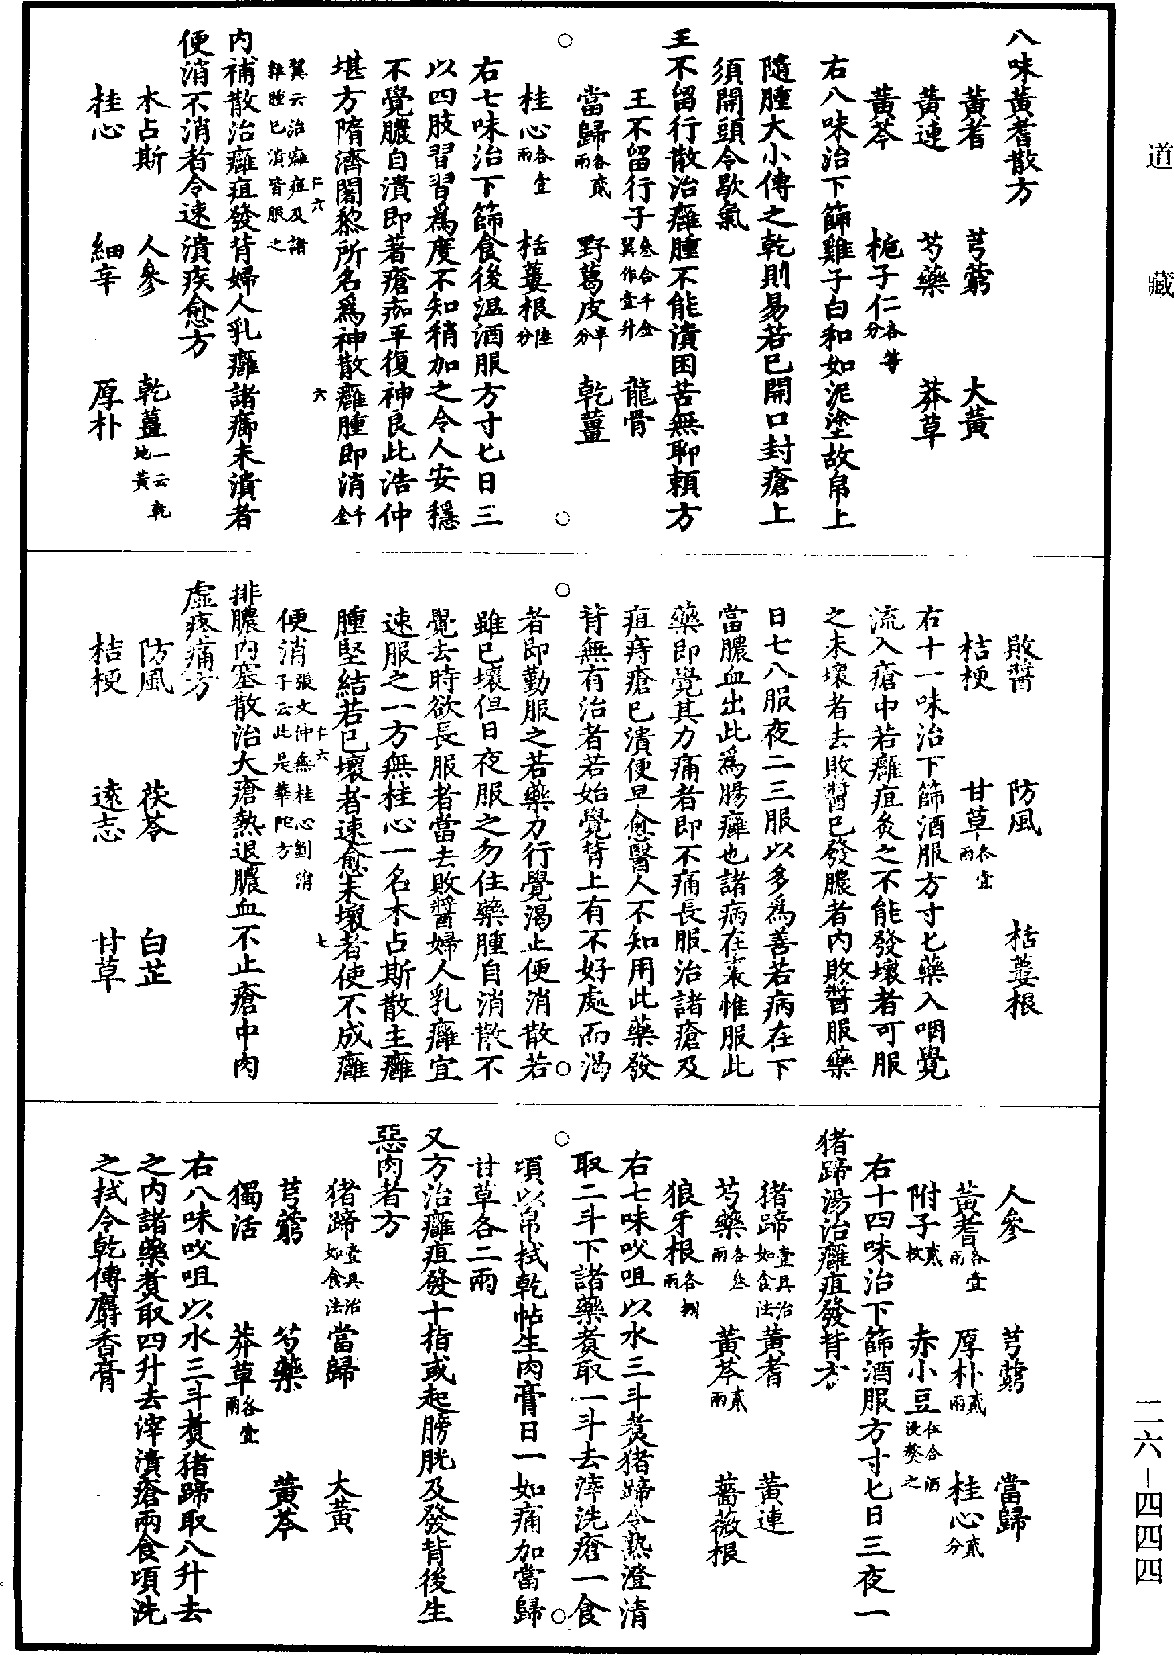 道藏
八味黃耆散方
黃耆　芎藭　大黃
黃連　芍藥　莽草
黃芩　梔子仁各等分
右八味治下篩雞子白和如泥塗故帛上
隨腫大小傅之乾則易若已開口封瘡上
須開頭令歇氣
王不留行散治癰腫不能潰困苦無聊賴方
王不留行子叁合千金翼作壹升　龍骨
當歸各貳兩　野葛皮半分　乾薑
桂心各壹兩　栝蔞根陸分
右七味治下篩食後溫酒服方寸匕日三
以四肢習習為度不知稍加之令人安穩
不覺膿自潰即著瘡痂平復神良此浩仲
堪方隋濟闍黎所名為神散癰腫即消千金
翼云治癰疽及諸雜腫已潰皆服之
六
內補散治癰疽發背婦人乳癰諸癤未潰者
便消不消者令速潰疾愈方
木占斯　人參　乾薑一云乾地黃
桂心　細辛　厚朴
敗醬　防風　栝蔞根
桔梗　甘草各壹兩
右十一味治下篩酒服方寸匕藥入咽覺
流入瘡中若癰疽灸之不能發壞者可服
之未壞者去敗醬已發膿者內敗醬服藥
日七八服夜二三服以多為善若病在下
當膿血出此為腸癰也諸病在裏惟服此
藥即覺其力痛者即不痛長服治諸瘡及
疽痔瘡已潰便早愈醫人不知用此藥發
背無有治者若始覺背上有不好處而渴
者即勤服之若藥力行覺渴止便消散若
雖已壞但日夜服之勿住藥腫自消散不
覺去時欲長服者當去敗醬婦人乳癰宜
速服之一方無桂心一名木占斯散主癰
腫堅結若已壞者速愈未壞者使不成癰
便消張文仲無桂心劉涓子云此是華陀方
七
排膿內塞散治大瘡熱退膿血不止瘡中肉
虛疼痛方
防風　茯苓　白芷
桔梗　遠志　甘草
人參　芎藭　當歸
黃耆各壹兩　厚朴貳兩　桂心貳分
附子貳枚　赤小豆伍合酒浸熬之
右十四味治下篩酒服方寸匕日三夜一
猪蹄湯治癰疽發背方
猪蹄壹具治如食法　黃耆　黃連
芍藥各叁兩　黃芩貳兩　薔薇根
狼牙根各捌兩
右七味㕮咀以水三斗煑猪蹄令熟澄清
取二斗下諸藥煑取一斗去滓洗瘡一食
頃以帛拭乾帖生肉膏日一如痛加當歸
甘草各二兩
又方治癰疽發十指或起膀胱及發背後生
惡肉者方
猪蹄壹具治如食法　當歸　大黃
芎藭　芍藥　黃芩
獨活　莽草各壹兩
右八味㕮咀以水三斗煑猪蹄取八升去
之內諸藥煑取四升去滓漬瘡兩食頃洗
之拭令乾傅麝香膏
二六-四四四